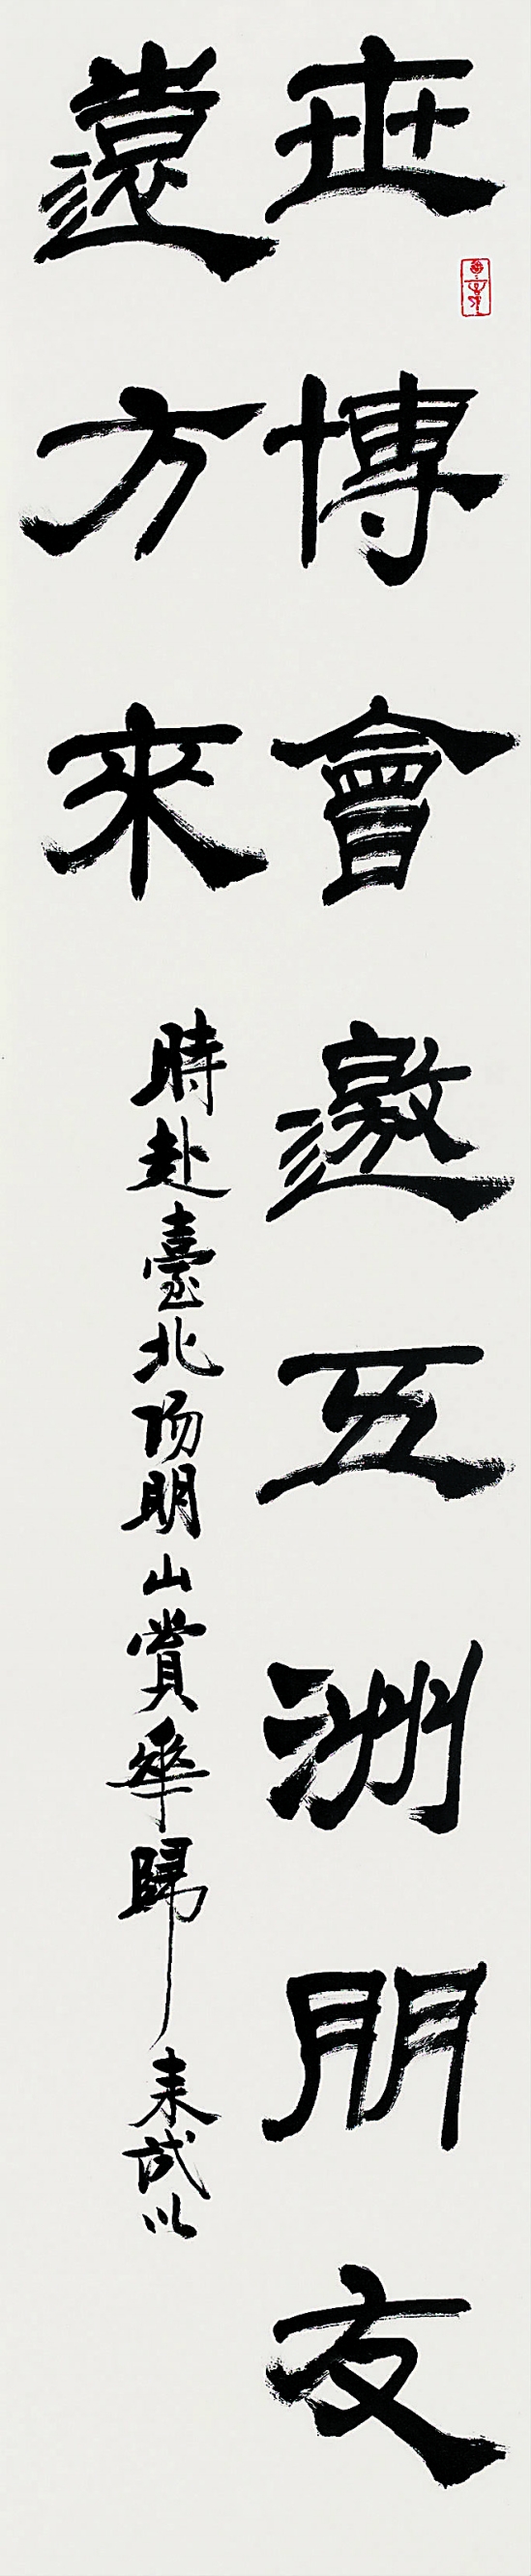 世博會邀五洲朋友
遠方來
時赴臺北陽明山賞華歸來試以